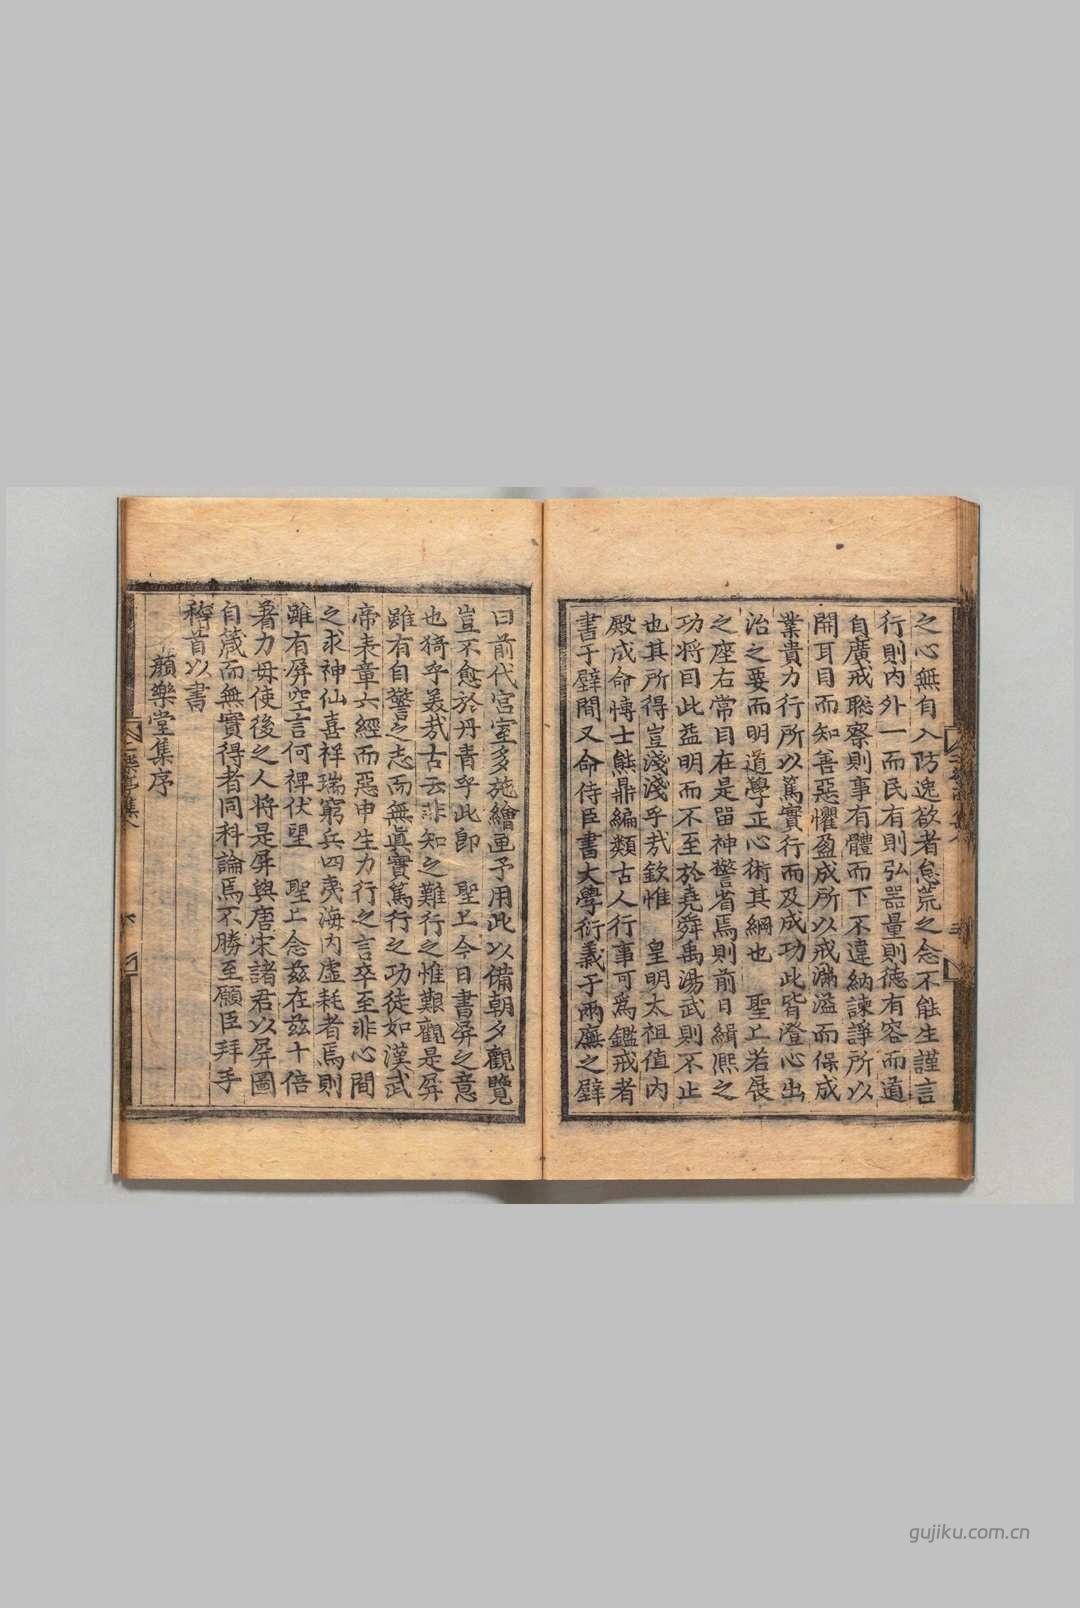 之心無有入防逸欲者怠荒之念不能生謹言
行則內外一而民有則弘器量則德有容而道
自廣戒聡察則事有體而下不違納諫諍所以
開耳目而知善惡懼盈成所以戒滿溢而保成
業貴力行所以篤實行而及成功此皆澄心出
治之要而明道學正心術其綱也　聖上若展
之座右常目在是留神警省焉則前日緝凞之
功將自此益明而不至於堯舜禹湯武則不止
也其所得豈淺淺乎哉欽惟　皇明太祖值內
殿成命愽士熊鼎編類古人行事可為鑑戒者
書于壁間又命侍臣書大學衍義于兩廡之壁
曰前代宮室多施繪畫予用此以備朝夕觀覽
豈不愈於丹青乎此卽　聖上今日書屏之意
也猗乎美哉古云非知之難行之惟艱觀是屏
雖有自警之志而無眞實篤行之功徒如漢武
帝表章六經而惡申生力行之言卒至非心間
之求神仙喜祥瑞窮兵四夷海內虛耗者焉則
雖有屏空言何裨伏望　聖上念兹在兹十倍
着力毋使後之人將是屏與唐宋諸君以屏圖
自箴而無實得者同科論焉不勝至願臣拜手
稽首以書
顏樂堂集序
二樂亭集八
六